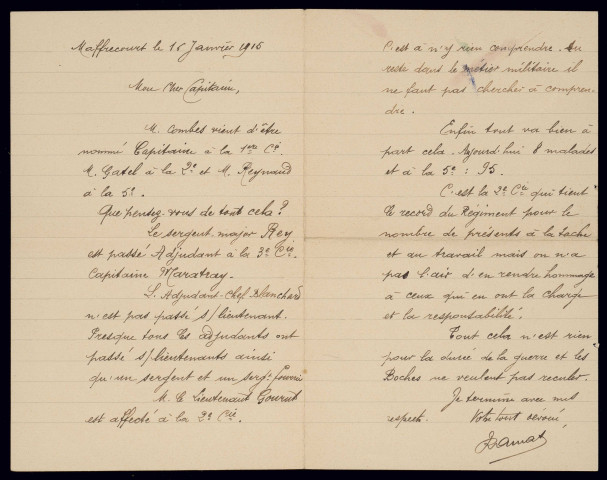 Maffrecourt le 16 Janvier 1916
Mon Cher Capitaine,
M. Combes vient d'être
nommé Capitaine à la 1ère Cie
M. Gatel à la 2e et M. Reynaud
à la 5e.
Que pensez-vous de tout cela?
Le sergent-major Rey
est passé Adjudant à la 3e Cie.
Capitaine Maratray.
L'Adjudant-Chef Blanchard
n'est pas passé s/lieutenant.
Presque tous les adjudants ont
passé s/lieutenants ainsi
qu'un sergent et un sergt fourrier
M. le Lieutenant
est affecté à la 2e Cie.
C'est à n'y rien comprendre. Au
reste dans le métier militaire il
ne faut pas chercher à compren-
dre.
Enfin tout va bien à
part cela. Aujourd'hui 8 malades
et à la 5e : 95.
C'est la 2e Cie qui tient
le record du Régiment pour le
nombre de présents à la tâche
et au travail mais on n'a
pas l'air d'en rendre hommage
à ceux qui en ont la charge
et la responsabilité.
Tout cela n'est rien
pour la durée de la guerre et les
Boches ne veulent pas reculer.
Je termine avec mes
respects. Votre tout dévoué,